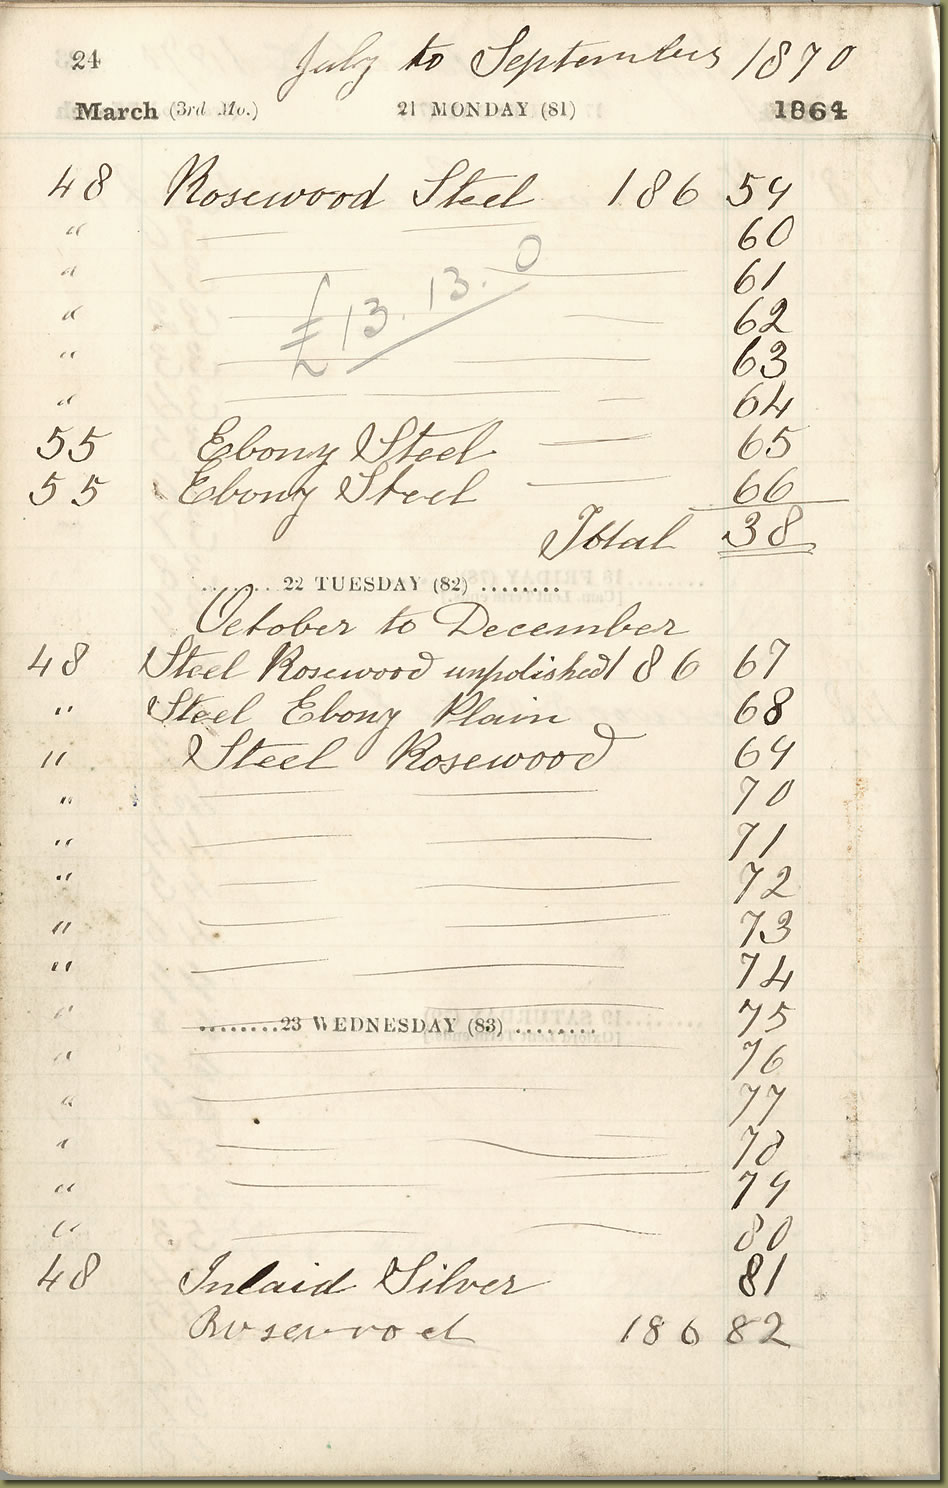 24 July to September 1870
March (3rd Mo.) 21 MONDAY (81) 1864
48 Rosewood Steel 186 59
" 60
" 61
£13.13.0
" 62
" 63
" 64
55 Ebony Steel 65
55 Ebony Steel 66
Total 38
........ 22 TUESDAY (82) ........
October to December
48 Steel Rosewood unpolished 186 67
" Steel Ebony Plain 68
" Steel Rosewood 69
" 70
" 71
" 72
" 73
" 74
" 75
........23 WEDNESDAY (83) ........
" 76
" 77
" 78
" 79
" 80
48 Inlaid Silver 81
Rosewood 186 82